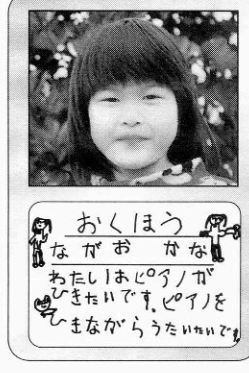 おくほう
ながお かな
わたしはピアノが
ひきたいです。ピアノを
ひきながらうたいたいです